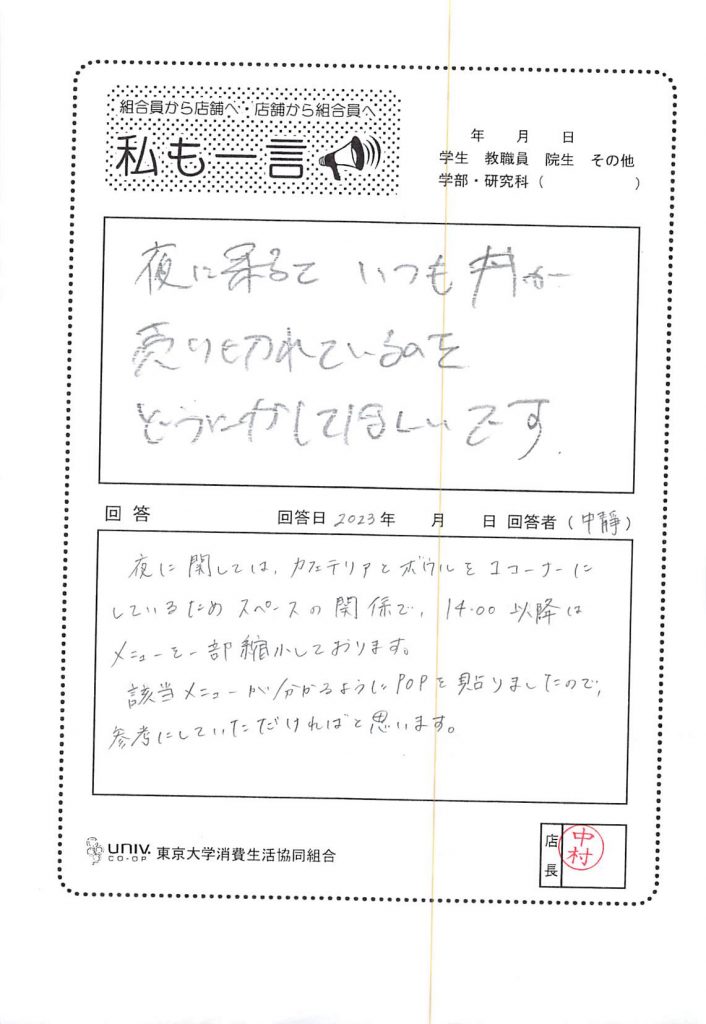 組合員から店舗へ・店舗から組合員へ
私も一言
年 月 日
学生 教職員 院生 その他
学部・研究科( )
夜に来るて いつも丼が
売り切れているのを
どうにかしてほしいです.
回答 回答日 2023年 月 日 回答者(中靜)
夜に関しては、カフェテリアとボウルを1コーナーに
しているためスペースの関係で、14:00以降は
メニューを一部縮小しております。
該当メニューが分かるようにPOPを貼りましたので、
参考にしていただければと思います。
UNIV. CO-OP 東京大学消費生活協同組合
店長 中村